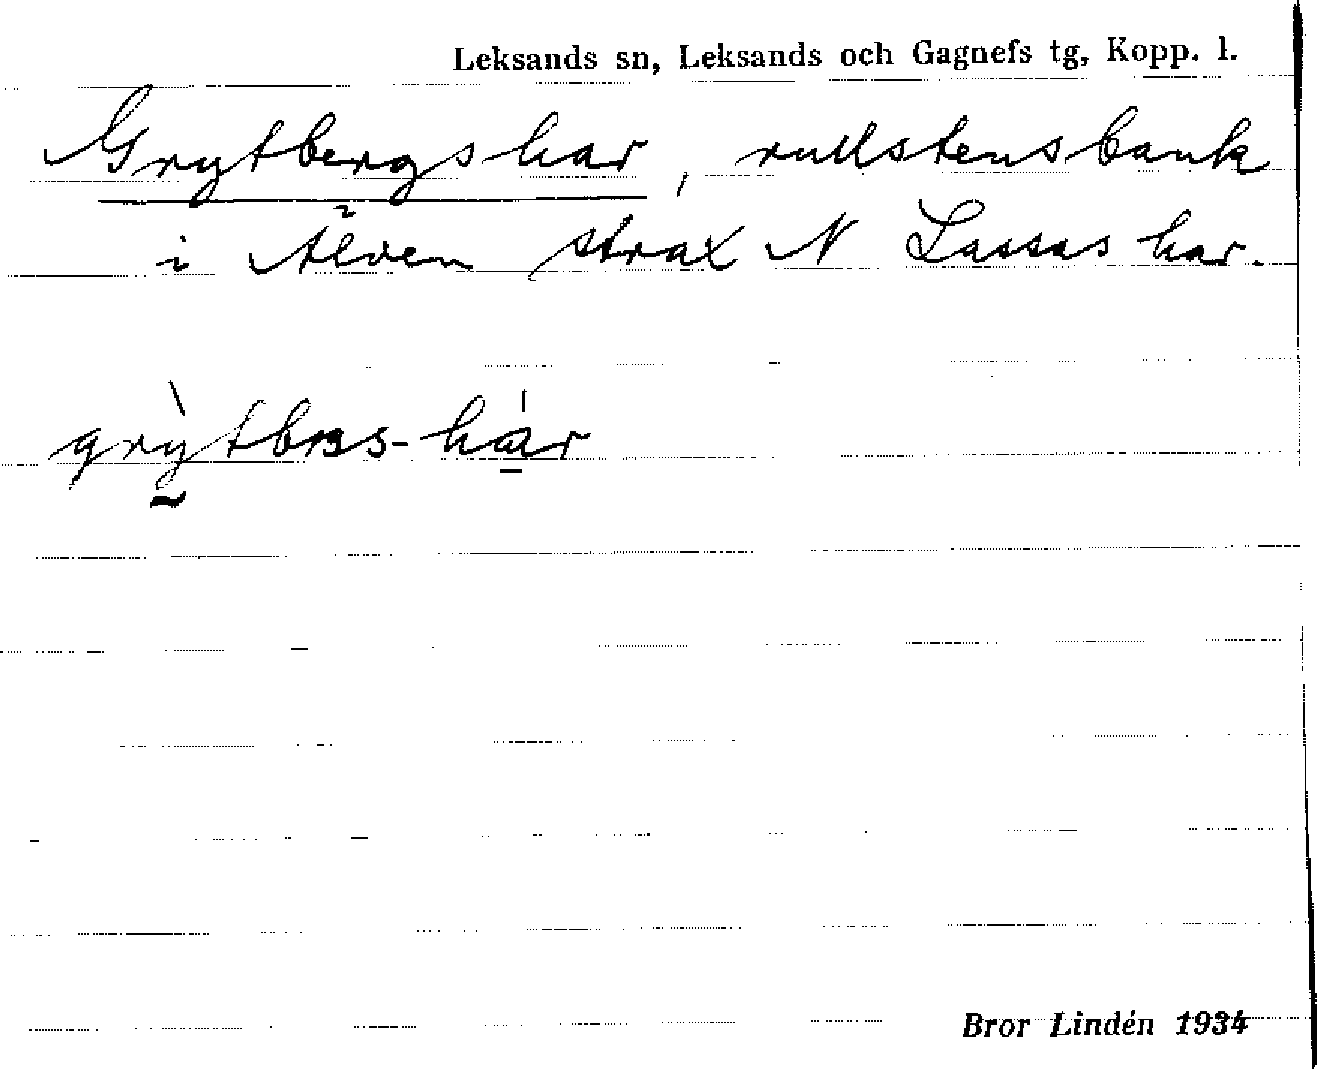 Leksands sn, Leksands och Gagnefs tg, Kopp. l.
Grytbergshar, rullstensbank
i Älven strax N Lassas har.
grỳtbres-há̱r
Bror Lindén 1934